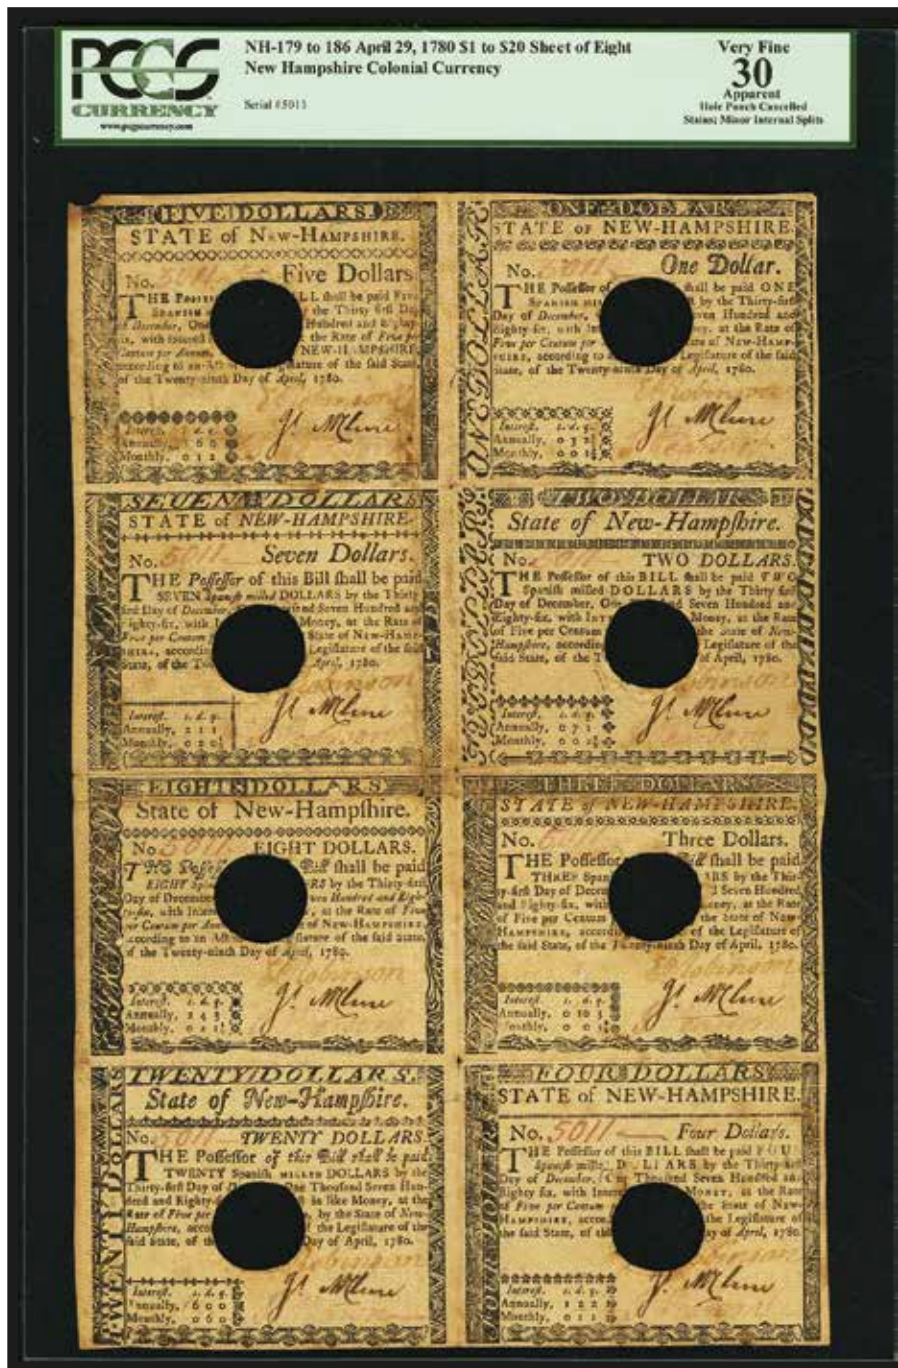 PCGS
CURRENCY
www.pcgscurrency.com
NH-179 to 186 April 29, 1780 $1 to $20 Sheet of Eight
New Hampshire Colonial Currency
Serial #5011
Very Fine
30
Apparent
Hole Punch Cancelled
Stains; Minor Internal Splits
FIVE DOLLARS.
STATE of NEW-HAMPSHIRE.
No. 5011 Five Dollars
THE Posses ILL shall be paid FIVE
SPANISH the Thirty first Day
of December, One Hundred and Eighty-
six, with Interest the Rate of Five per
Centum per Annum, NEW-HAMPSHIRE
according to an Act of lature of the said State,
of the Twenty-ninth Day of April, 1780.
Interest. s. d. q.
Annually,
Monthly, 0 1 2
ONE DOLLAR
STATE OF NEW-HAMPSHIRE
No. 5011 One Dollar.
ONE DOLLAR
THE Possessor of shall be paid ONE
SPANISH MIL by the Thirty-first
Day of December, even Hundred and
Eighty-six, with In ney, at the Rate of
Five per Centum per ate of NEW-HAMP-
SHIRE, according to a Legislature of the said
State, of the Twenty-ninth Day of April, 1780.
Interest. s. d. q.
Annually, 0 3 2
Monthly, 0 0 1
SEVEN DOLLARS
STATE of NEW-HAMPSHIRE.
No. 5011 Seven Dollars.
THE Possessor of this Bill shall be paid
SEVEN Spanish milled DOLLARS by the Thirty
first Day of December, sand Seven Hundred and
Eighty-six, with I Money, at the Rate of
Five per Centum State of NEW-HAMP-
SHIRE, accordin Legislature of the said
State, of the Tw April, 1780.
Interest. s. d. q.
Annually, 2 1 1
Monthly, 0 2 0
TWO DOLLARS
State of New-Hampshire.
No. 5011 TWO DOLLARS.
THE Possessor of this BILL shall be paid TWO
Spanish milled DOLLARS by the Thirty first
Day of December, One and Seven Hundred and
Eighty-six, with INT Money, at the Rate
of Five per Centum the State of New-
Hampshire, accordin Legislature of the
said State, of the T of April, 1780.
Interest. s. d. q.
Annually, 0 7 1
Monthly, 0 0 2
EIGHT DOLLARS
State of New-Hampshire.
No. 5011 EIGHT DOLLARS.
THE Possess Bill shall be paid
EIGHT Span RS by the Thirty-first
Day of December ven Hundred and Eigh-
ty-six, with Intere , at the Rate of Five
per Centum per Ann of NEW-HAMPSHIRE,
according to an A slature of the said State,
of the Twenty-ninth Day of April, 1780.
Interest. s. d. q.
Annually, 2 4 3
Monthly, 0 2 1
THREE DOLLARS
STATE of NEW-HAMPSHIRE.
No. Three Dollars.
THE Possessor Bill shall be paid
THREE Span ARS by the Thir-
ty-first Day of Decem d Seven Hundred
and Eighty-six, with oney, at the Rate
of Five per Centum the State of NEW-
HAMPSHIRE, accordi of the Legislature of
the said State, of the Twenty-ninth Day of April, 1780.
Interest. s. d. q.
Annually, 0 10 3
Monthly, 0 0 3
TWENTY DOLLARS.
State of New-Hampshire.
TWENTY DOLLARS
No. 5011 TWENTY DOLLARS.
THE Possessor of this Bill shall be paid
TWENTY Spanish MILLED DOLLARS by the
Thirty-first Day of D One Thousand Seven Hun-
dred and Eighty-six in like Money, at the
Rate of Five per , by the State of New-
Hampshire, acco the Legislature of the
said State, of th Day of April, 1780.
Interest. s. d. q.
Annually, 6 0 0
Monthly, 0 6 0
FOUR DOLLARS
STATE OF NEW-HAMPSHIRE.
No. 5011 Four Dollars.
THE Possessor of this BILL shall be paid FOUR
Spanish milled DOLLARS by the Thirty-first
Day of December, One Thousand Seven Hundred and
Eighty six, with Inter MONEY, at the Rate
of Five per Centum the State of NEW-
HAMPSHIRE, accor the Legislature of
the said State, of th ay of April, 1780.
Interest. s. d. q.
Annually, 1 2 2
Monthly, 0 1 1